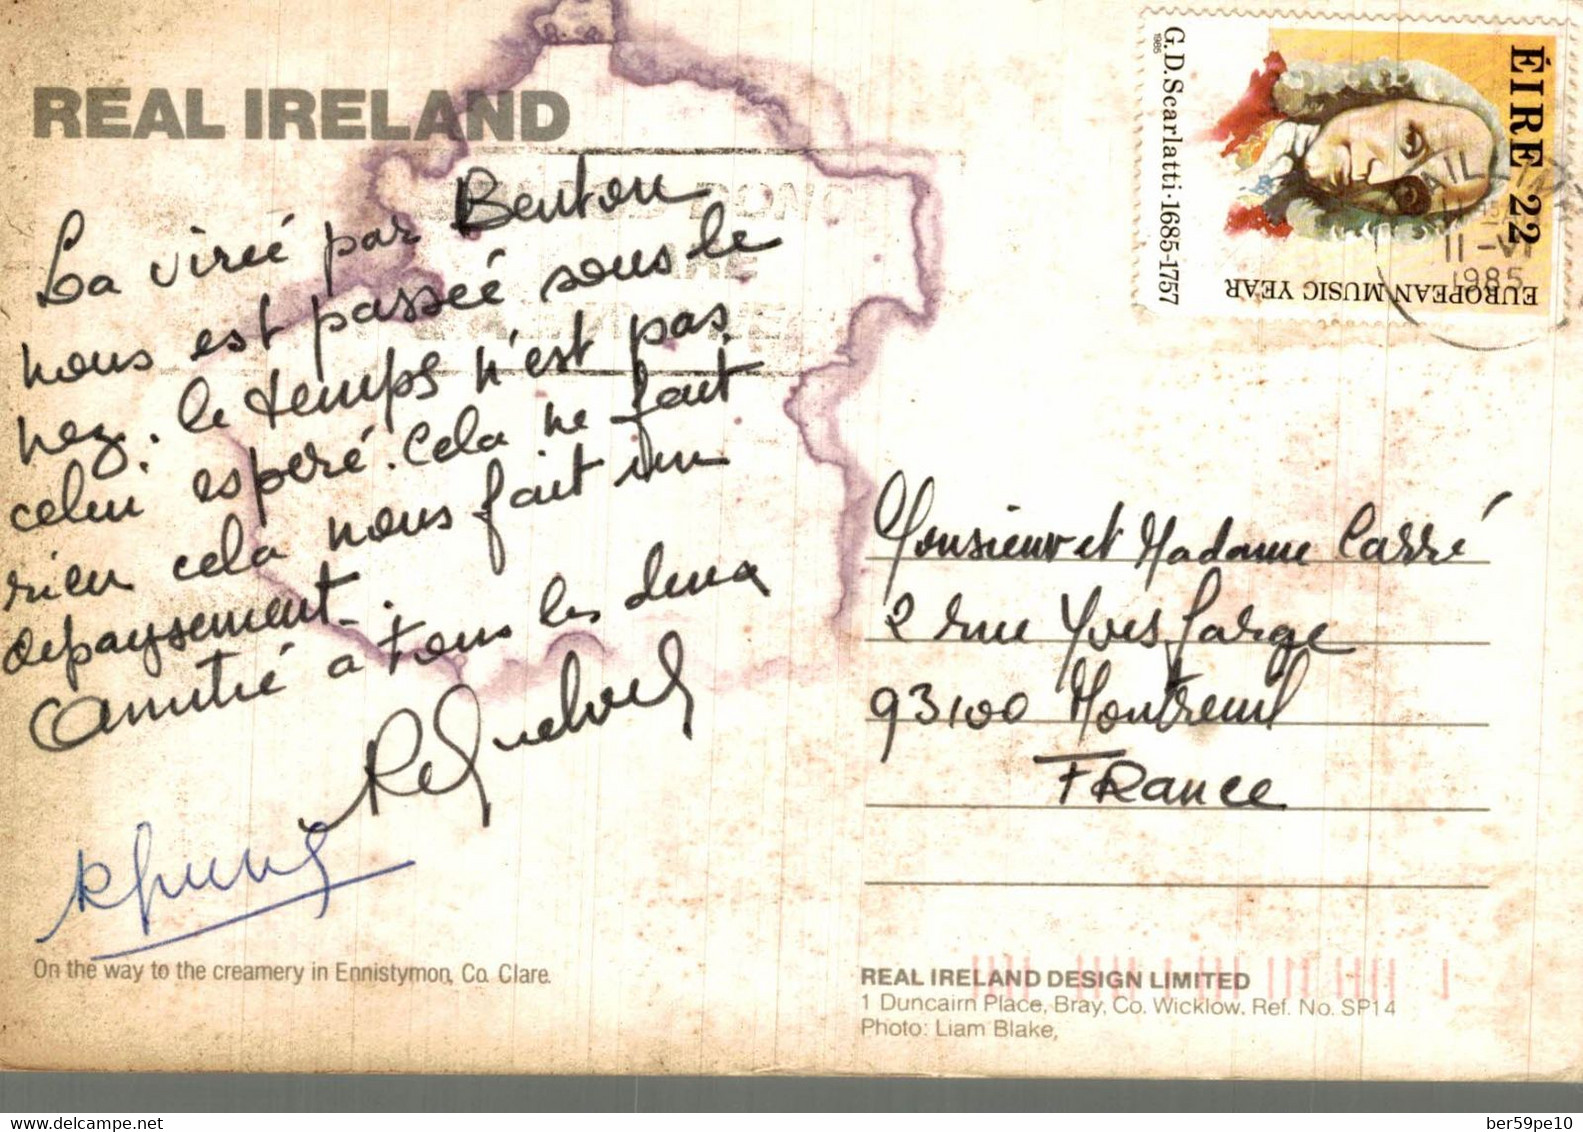 REAL IRELAND
La virée par Benton
nous est passée sous le
nez. le temps n'est pas
celui espéré. Cela ne fait
rien cela nous fait un
depaysement.
Amitié a tous les deux
On the way to the creamery in Ennistymon, Co. Clare.
ÉIRE 22
G.D.Scarlatti·1685-1757
1985
EUROPEAN MUSIC YEAR
11-VI
1985
Monsieur et Madame Carré
2 rue Yves Farge
93100 Montreuil
FRance
REAL IRELAND DESIGN LIMITED
1 Duncairn Place, Bray, Co. Wicklow. Ref. No. SP14
Photo: Liam Blake,
www.delcampe.net
ber59pe10